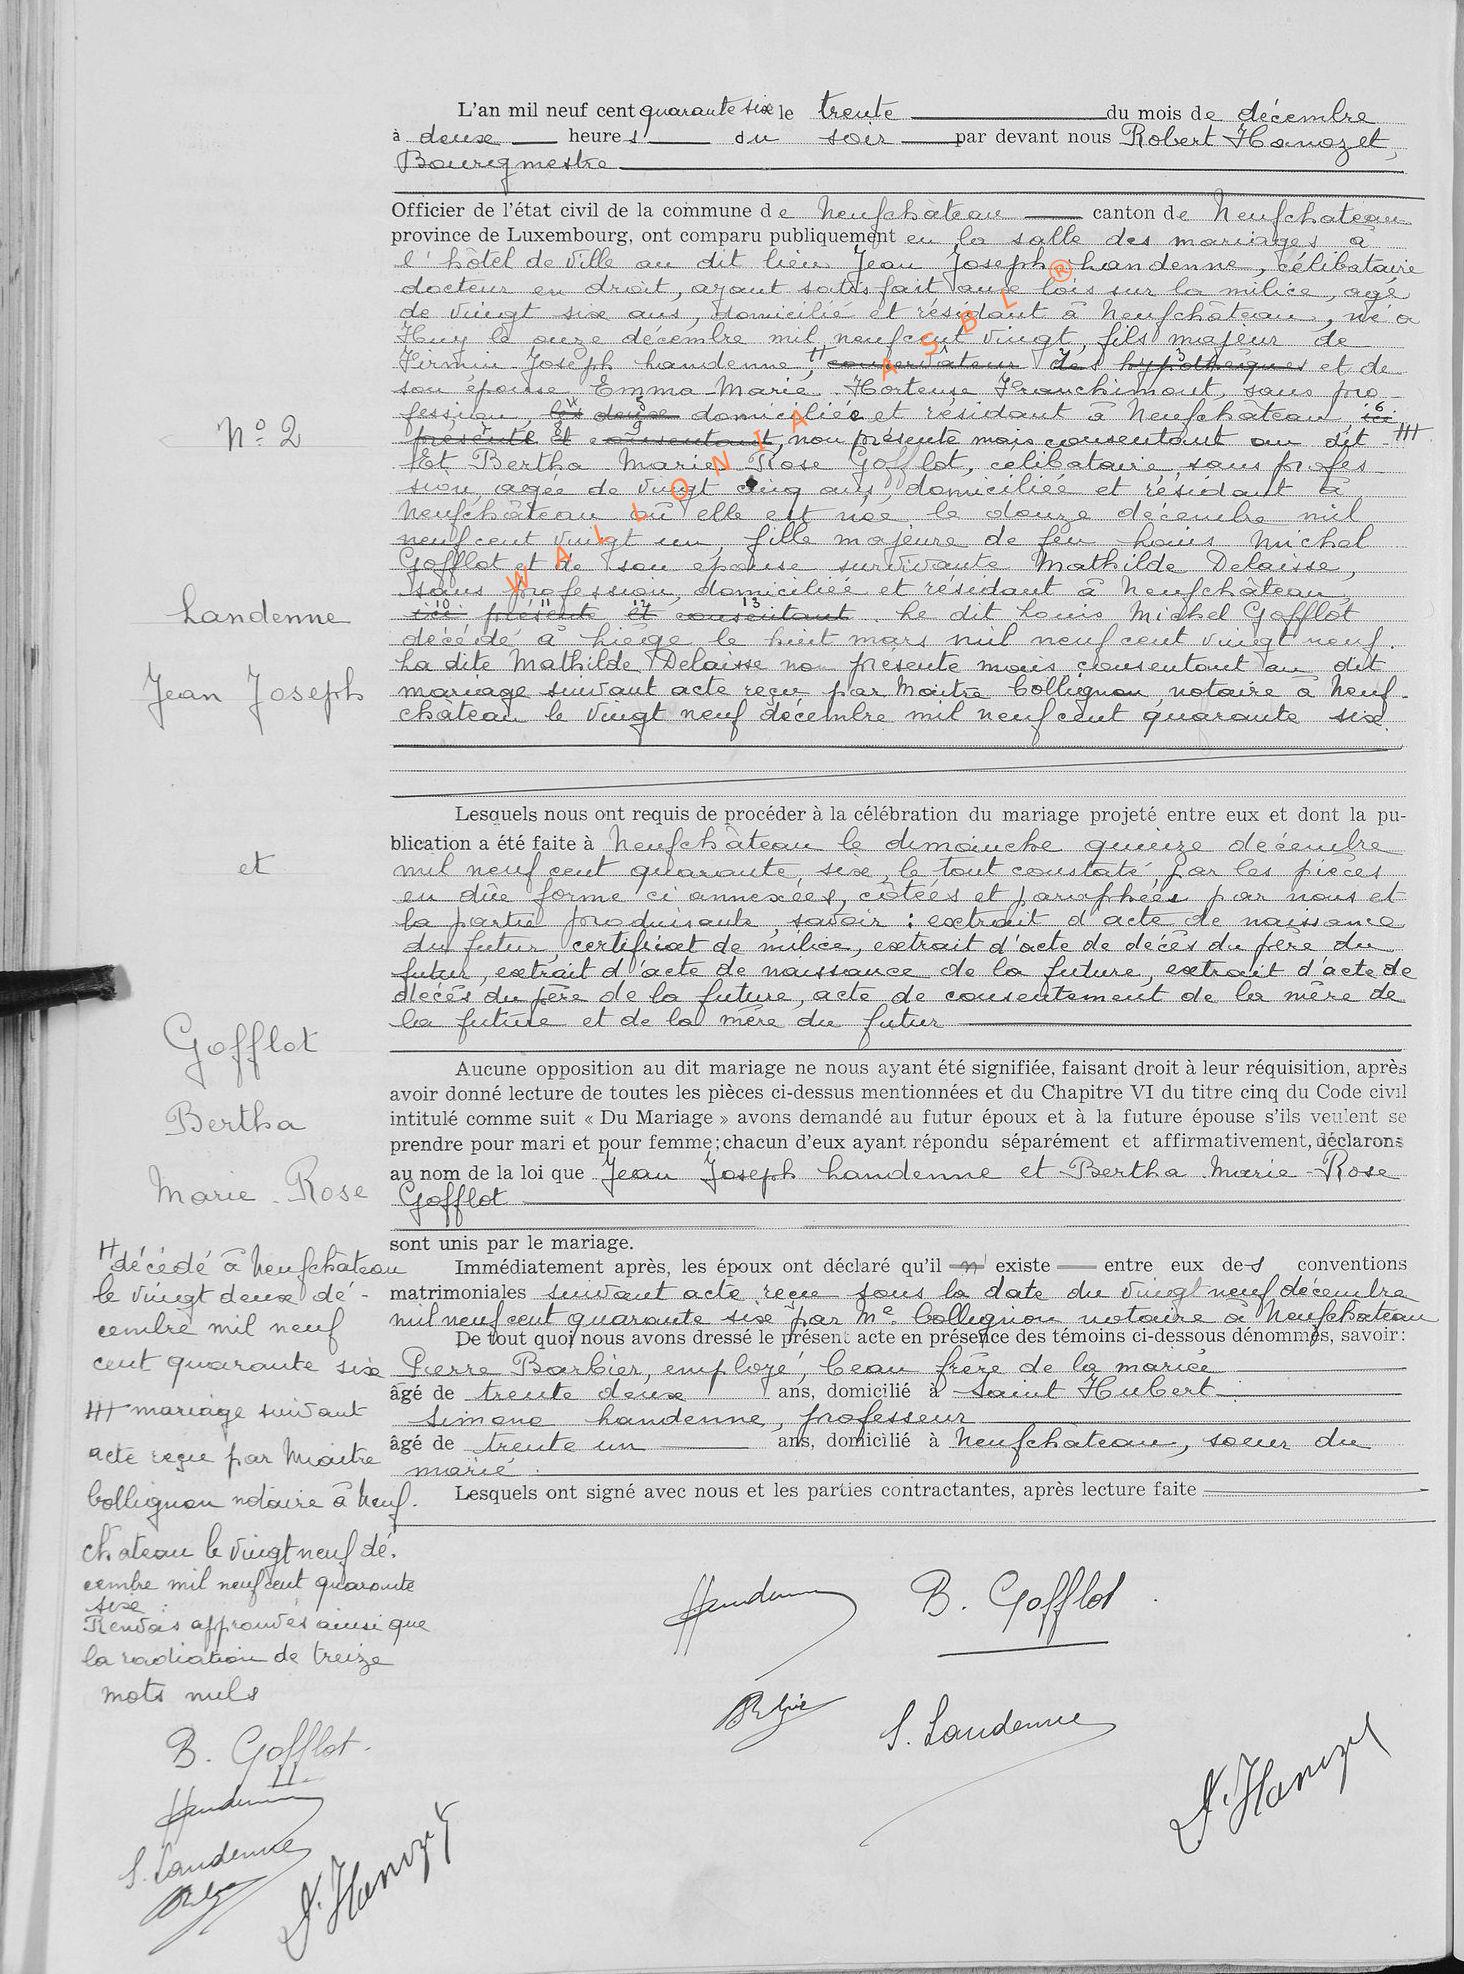 L'an mil neuf cent quarante six le trente du mois de décembre
à deux heures du soir par devant nous Robert Hanozet,
Bourgmestre
Officier de l'état civil de la commune de Neufchâteau canton de Neufchateau
province de Luxembourg, ont comparu publiquement en la salle des mariages à
l'hôtel de ville au dit lieu Jean Joseph Landenne, célibataire
docteur en droit, ayant satisfait aux lois sur la milice, agé
de vingt six ans, domicilié et résidant à Neufchâteau, né à
Huy le onze décembre mil neuf cent vingt, fils majeur de
Firmin Joseph Landenne, H conservateur des hypothèques et de
son épouse Emma Marie Hortense Franchimont, sans pro-
fession, les deux domiciliée et résidant à Neufchâteau ici
présente et consentant, non présente mais consentant au dit HH
Et Bertha Marie Rose Gofflot, célibataire, sans profes-
sion, agée de vingt cinq ans, domiciliée et résidant à
Neufchâteau où elle est née le douze décembre mil
neuf cent vingt un, fille majeure de feu Louis Michel
Gofflot et de son épouse survivante Mathilde Delaisse,
sans profession, domiciliée et résidant à Neufchâteau,
ici présente et consentant. Le dit Louis Michel Gofflot
décédé à Liège le huit mars mil neuf cent vingt neuf.
La dite Mathilde Delaisse non présente mais consentant au dit
mariage suivant acte reçu par Maître Collignon, notaire à Neuf-
château le vingt neuf décembre mil neuf cent quarante six.
Lesquels nous ont requis de procéder à la célébration du mariage projeté entre eux et dont la pu-
blication a été faite à Neufchâteau le dimanche quinze décembre
mil neuf cent quarante six, le tout constaté par les pièces
en dûe forme ci annexées, côtées et paraphées par nous et
la partie produisante, savoir : extrait d'acte de naissance
du futur, certificat de milice, extrait d'acte de décès du père du
futur, extrait d'acte de naissance de la future, extrait d'acte de
décès du père de la future, acte de consentement de la mère de
la future et de la mère du futur
Aucune opposition au dit mariage ne nous ayant été signifiée, faisant droit à leur réquisition, après
avoir donné lecture de toutes les pièces ci-dessus mentionnées et du Chapitre VI du titre cinq du Code civil
intitulé comme suit « Du Mariage » avons demandé au futur époux et à la future épouse s'ils veulent se
prendre pour mari et pour femme; chacun d'eux ayant répondu séparément et affirmativement, déclarons
au nom de la loi que Jean Joseph Landenne et Bertha Marie-Rose
Gofflot
sont unis par le mariage.
Immédiatement après, les époux ont déclaré qu'il n' existe entre eux des conventions
matrimoniales suivant acte reçu sous la date du vingt neuf décembre
mil neuf cent quarante six par Me Collignon notaire à Neufchateau
De tout quoi nous avons dressé le présent acte en présence des témoins ci-dessous dénommés, savoir:
Pierre Barbier, employé, beau frère de la mariée
âgé de trente deux ans, domicilié à Saint Hubert
Simone Landenne, professeur
âgé de trente un ans, domicilié à Neufchâteau, soeur du
marié.
Lesquels ont signé avec nous et les parties contractantes, après lecture faite
B. Gofflot
S. Landenne
No 2
Landenne
Jean Joseph
et
Gofflot
Bertha
Marie-Rose
H décédé à Neufchâteau
le vingt deux dé-
cembre mil neuf
cent quarante six
HH mariage suivant
acte reçu par Maître
Collignon notaire à Neuf-
château le vingt neuf dé-
cembre mil neuf cent quarante
six.
Renvois approuvés ainsi que
la radiation de treize
mots nuls
B. Gofflot
S. Landenne
WALLONIA ASBL ®